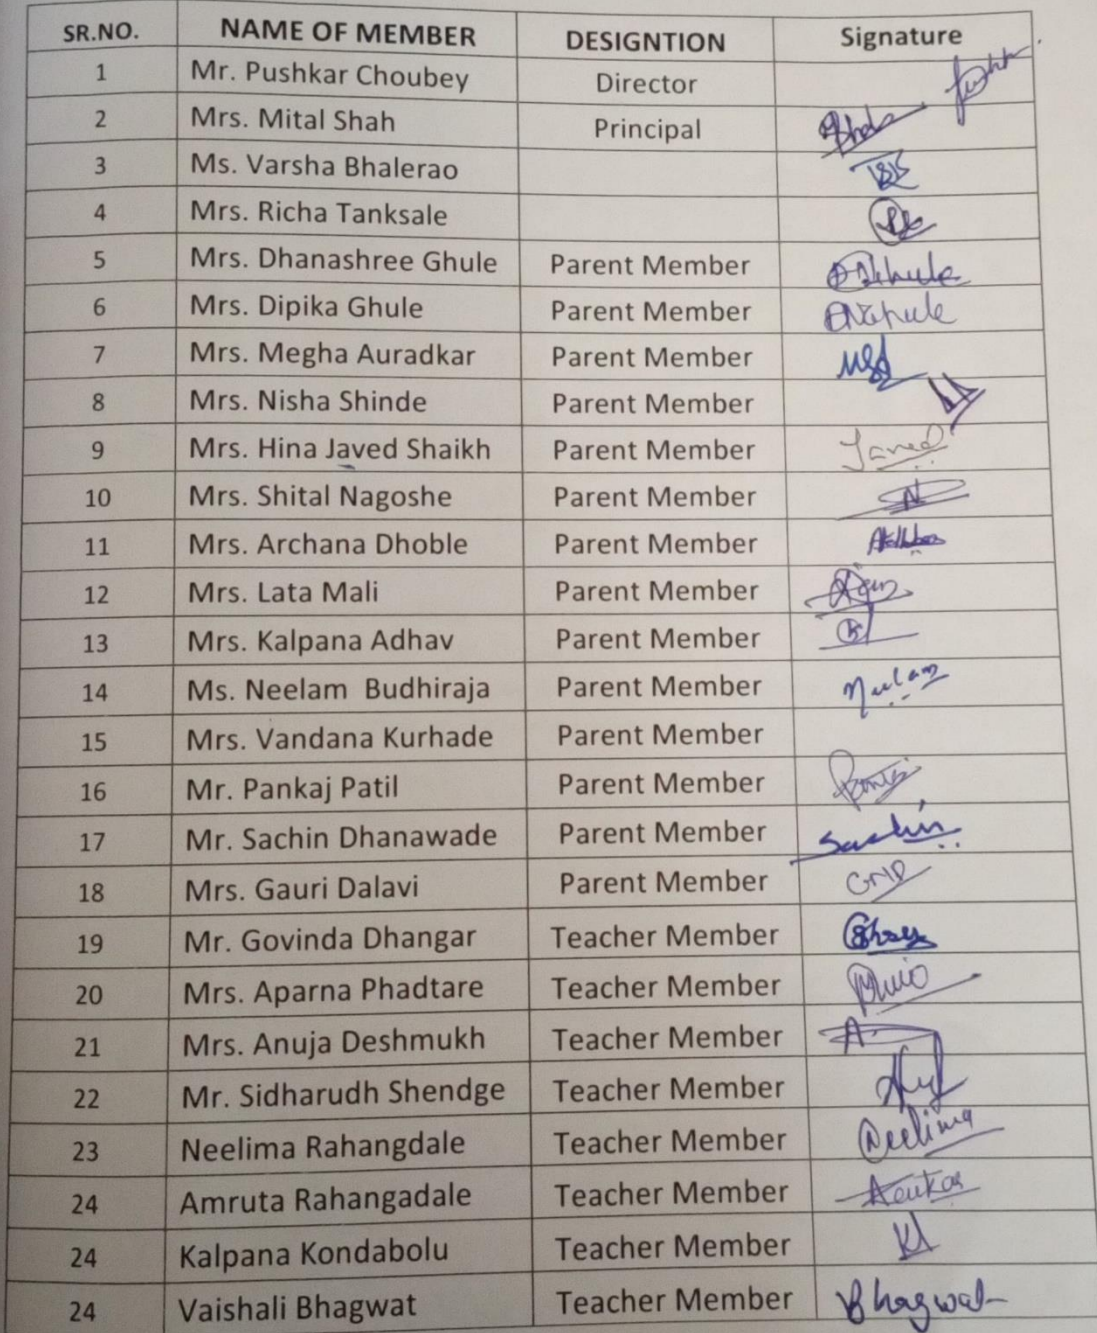 SR.NO. NAME OF MEMBER DESIGNTION Signature
1 Mr. Pushkar Choubey Director
2 Mrs. Mital Shah Principal
3 Ms. Varsha Bhalerao
4 Mrs. Richa Tanksale
5 Mrs. Dhanashree Ghule Parent Member
6 Mrs. Dipika Ghule Parent Member
7 Mrs. Megha Auradkar Parent Member
8 Mrs. Nisha Shinde Parent Member
9 Mrs. Hina Javed Shaikh Parent Member Javed
10 Mrs. Shital Nagoshe Parent Member
11 Mrs. Archana Dhoble Parent Member
12 Mrs. Lata Mali Parent Member
13 Mrs. Kalpana Adhav Parent Member
14 Ms. Neelam Budhiraja Parent Member Neelam
15 Mrs. Vandana Kurhade Parent Member
16 Mr. Pankaj Patil Parent Member
17 Mr. Sachin Dhanawade Parent Member Sachin
18 Mrs. Gauri Dalavi Parent Member
19 Mr. Govinda Dhangar Teacher Member
20 Mrs. Aparna Phadtare Teacher Member
21 Mrs. Anuja Deshmukh Teacher Member
22 Mr. Sidharudh Shendge Teacher Member
23 Neelima Rahangdale Teacher Member Neelima
24 Amruta Rahangadale Teacher Member
24 Kalpana Kondabolu Teacher Member
24 Vaishali Bhagwat Teacher Member Bhagwat